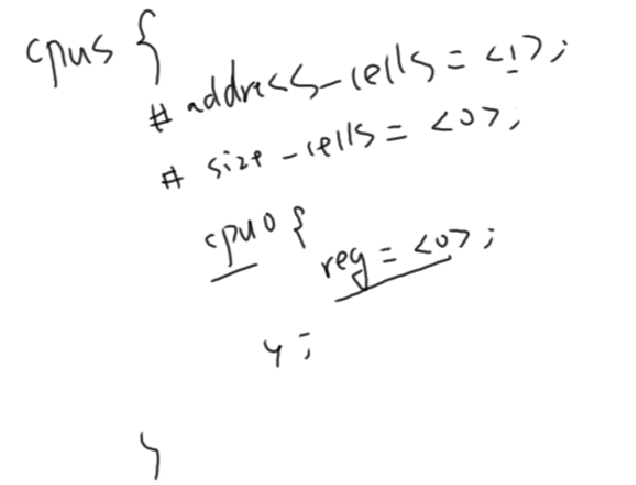 cpus {
# address-cells = <1>;
# size-cells = <0>;
cpu0 {
reg = <0>;
};
}